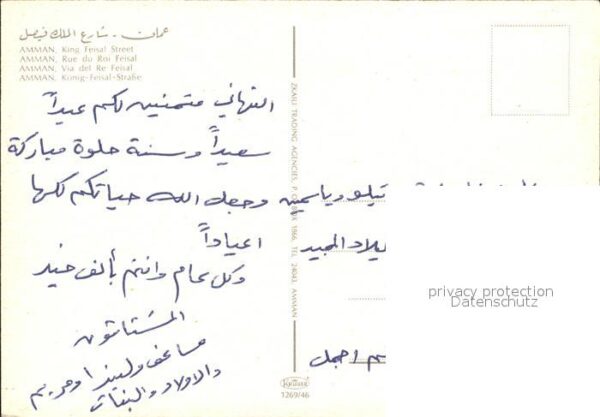 عمان - شارع الملك فيصل
AMMAN, King Feisal Street
AMMAN, Rue du Roi Feisal
AMMAN, Via del Re Feisal
AMMAN, König-Feisal-Straße
ZKAKLI TRADING AGENCIES, P.O. BOX 1866, TEL. 24043 AMMAN
وياسمين
يلاد المجيد
اجمل
التهاني متمنين لكم عيداً
سعيداً وسنة حلوة مباركة
وجعل الله حياتكم كلها
اعياداً
وكل عام وانتم بألف خير
المشتاقون
وليندا ومريم
والاولاد والبنات
KRÜGER
1269/46
privacy protection
Datenschutz